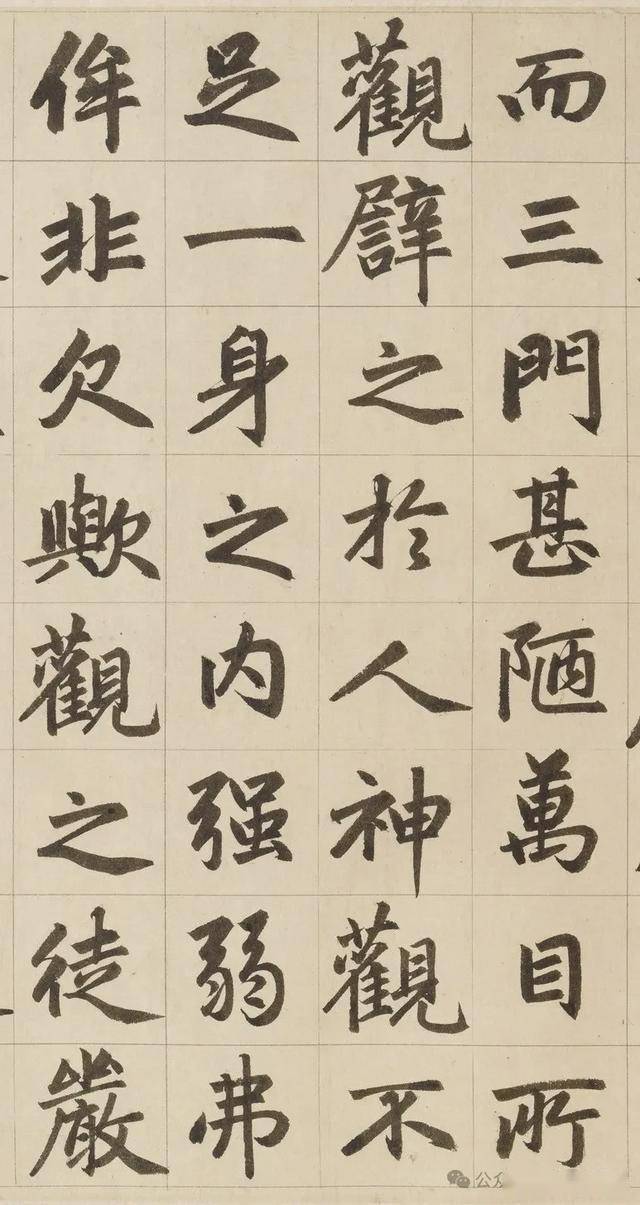 而三門甚陋萬目所
觀譬之於人神觀不
足一身之内强弱弗
侔非欠歟觀之徒嚴
公众